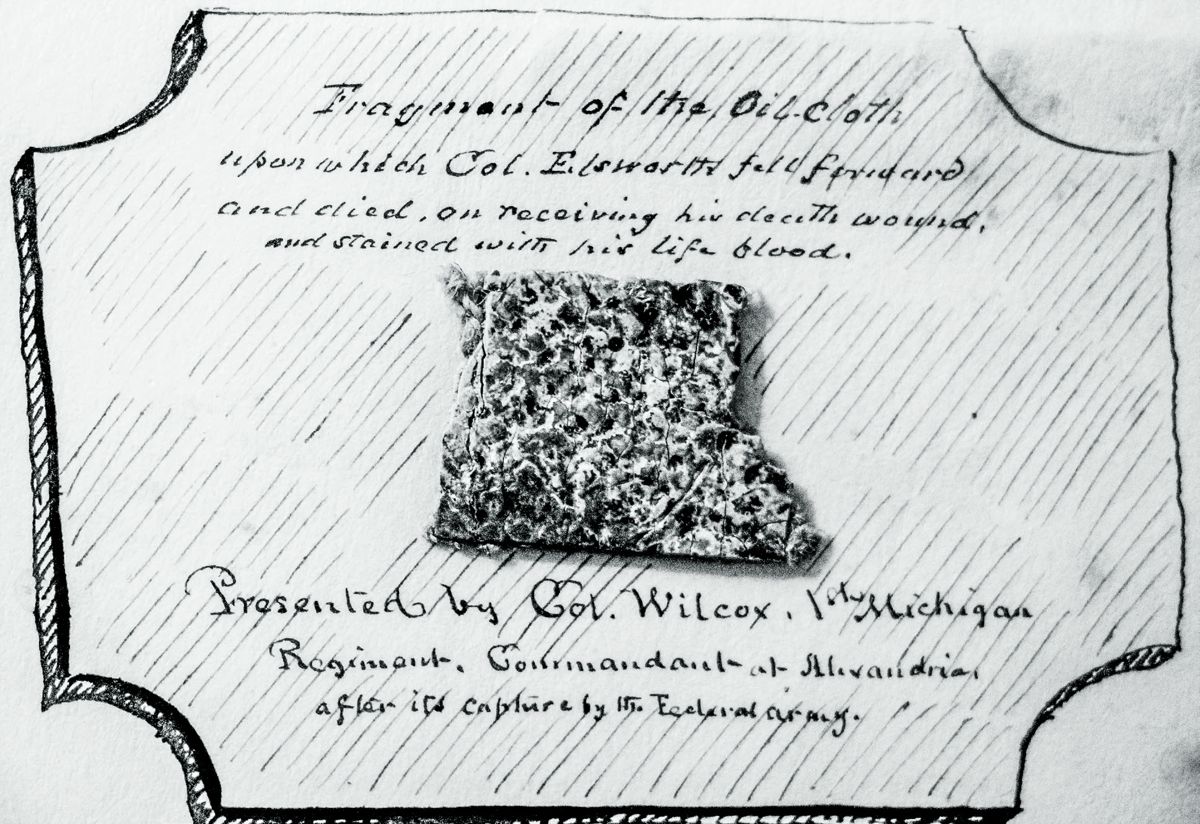 Fragment of the Oil-Cloth
upon which Col. Elsworth fell forward
and died, on receiving his death wound,
and stained with his life blood.
Presented by Col. Wilcox, 1st Michigan
Regiment, Commandant at Alexandria,
after its capture by the Federal army.